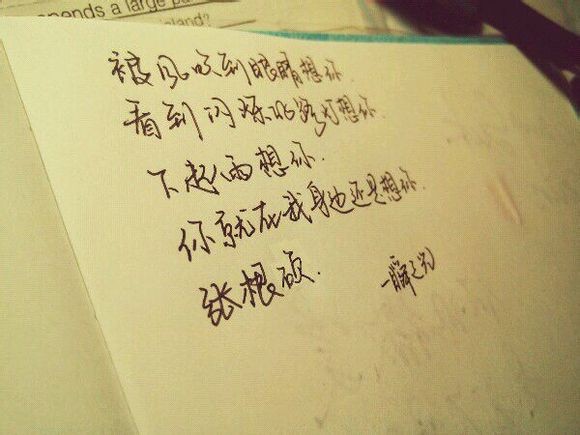 spends a large pa
island?
被风吹到眼睛想你.
看到闪烁的路灯想你.
下起雨想你.
你就在我身边还是想你.
张根硕.
一瞬之光